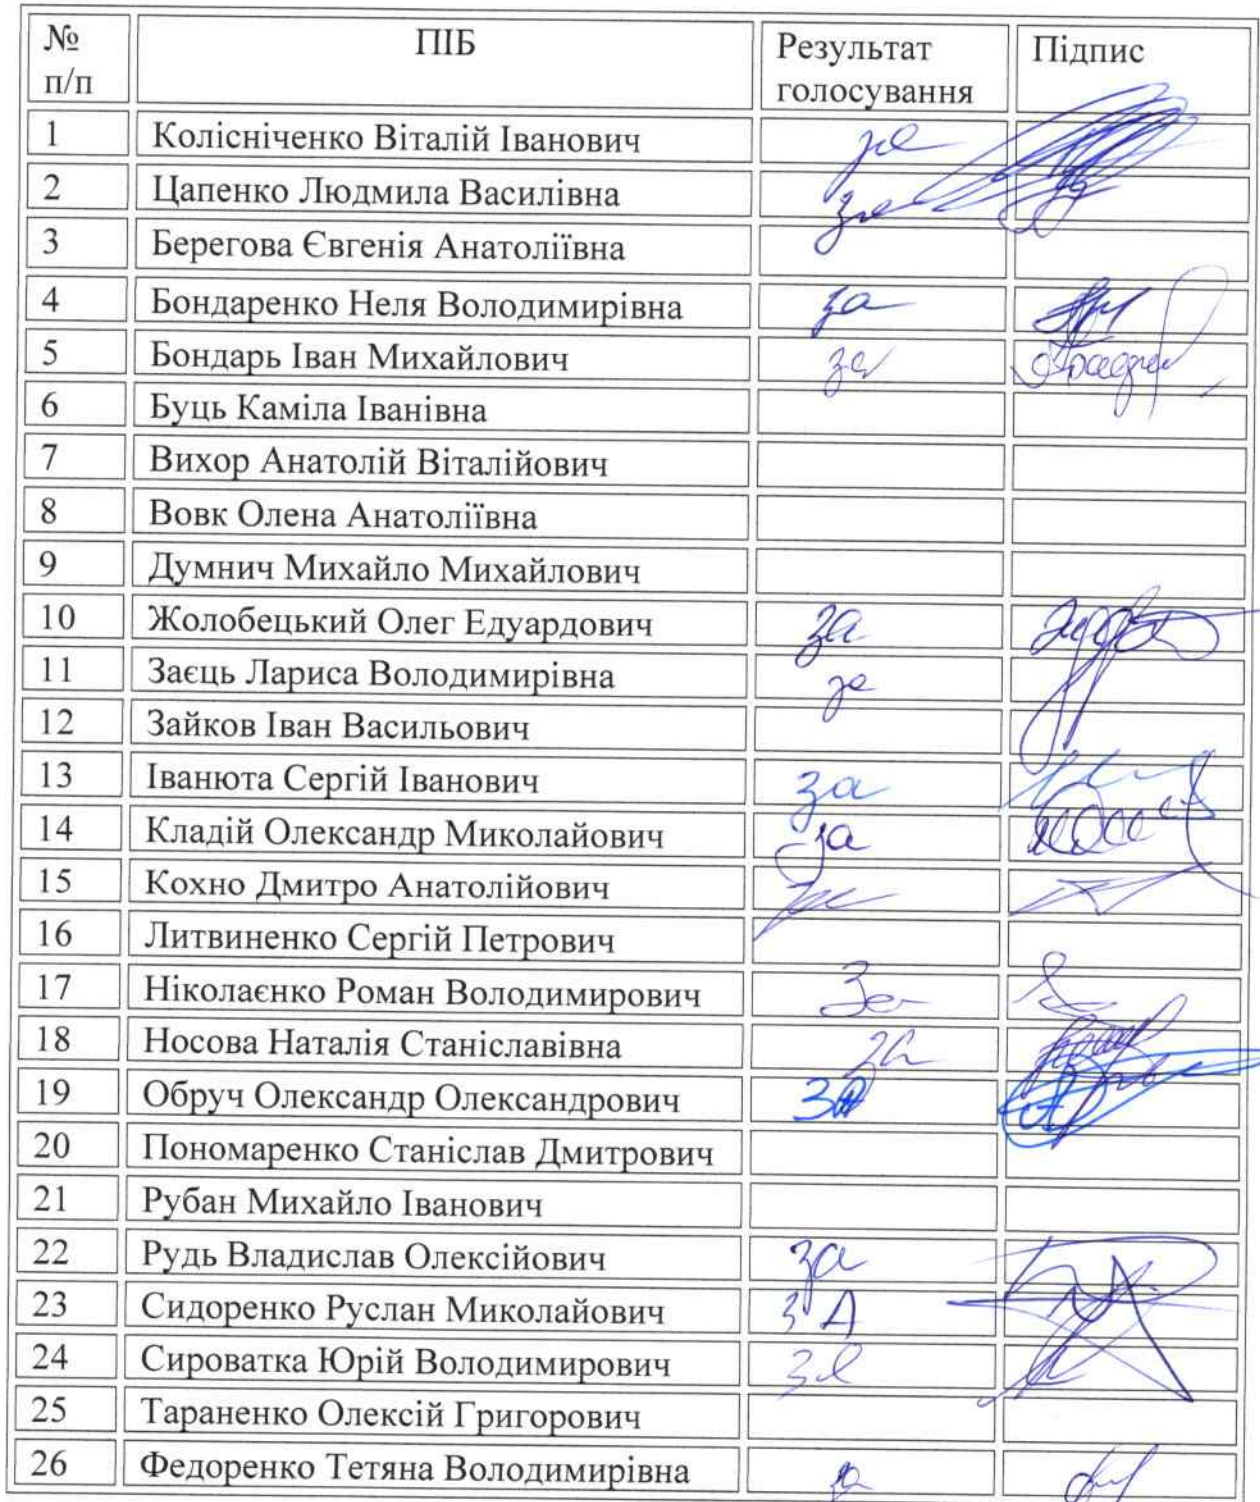 № п/п ПІБ Результат голосування Підпис
1 Колісніченко Віталій Іванович за
2 Цапенко Людмила Василівна за
3 Берегова Євгенія Анатоліївна
4 Бондаренко Неля Володимирівна за
5 Бондарь Іван Михайлович за
6 Буць Каміла Іванівна
7 Вихор Анатолій Віталійович
8 Вовк Олена Анатоліївна
9 Думнич Михайло Михайлович
10 Жолобецький Олег Едуардович за
11 Заєць Лариса Володимирівна за
12 Зайков Іван Васильович
13 Іванюта Сергій Іванович за
14 Кладій Олександр Миколайович за
15 Кохно Дмитро Анатолійович за
16 Литвиненко Сергій Петрович
17 Ніколаєнко Роман Володимирович За
18 Носова Наталія Станіславівна за
19 Обруч Олександр Олександрович ЗА
20 Пономаренко Станіслав Дмитрович
21 Рубан Михайло Іванович
22 Рудь Владислав Олексійович за
23 Сидоренко Руслан Миколайович зА
24 Сироватка Юрій Володимирович за
25 Тараненко Олексій Григорович
26 Федоренко Тетяна Володимирівна за